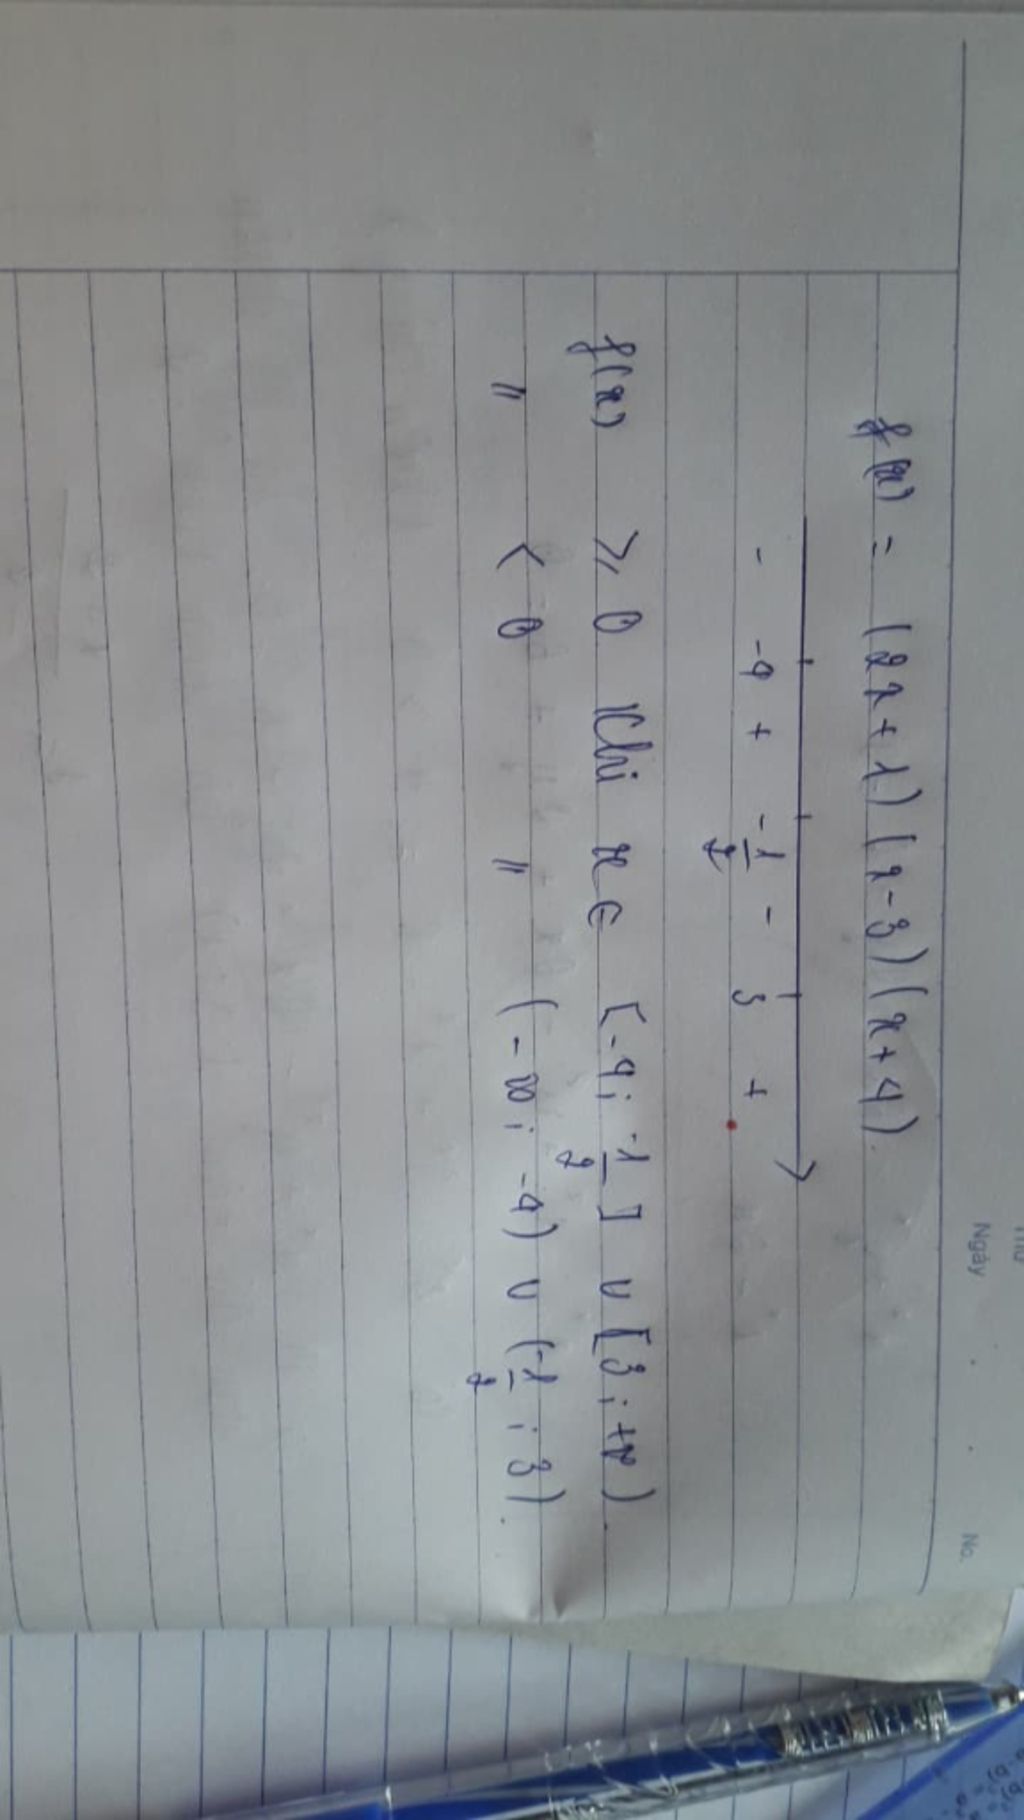 Thứ
Ngày
No.
f(x) = (2x+1)(x-3)(x+4).
- -4 + -1/2 - 3 +
f(x) ⩾ 0 Khi x ∈ [-4; -1/2] ∪ [3; +∞).
" < 0 " (-∞; -4) ∪ (-1/2; 3).